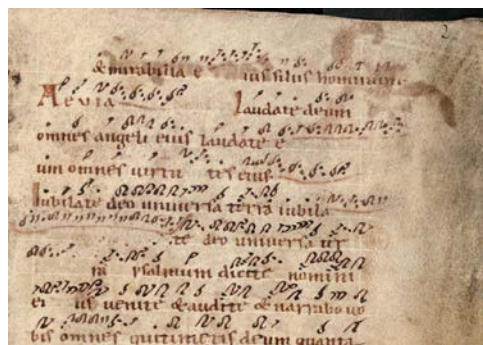 2
& mirabilia e ius filiis hominum
Aeuia Laudate deum
omnes angeli eius laudate e
um omnes uirtu tes eius
Iubilate deo uniuersa terra iubila
te deo uniuersa
ra psalmum dicite nomini
ei us uenite & audite & narrabo uo
bis omnes qui timetis deum quanta